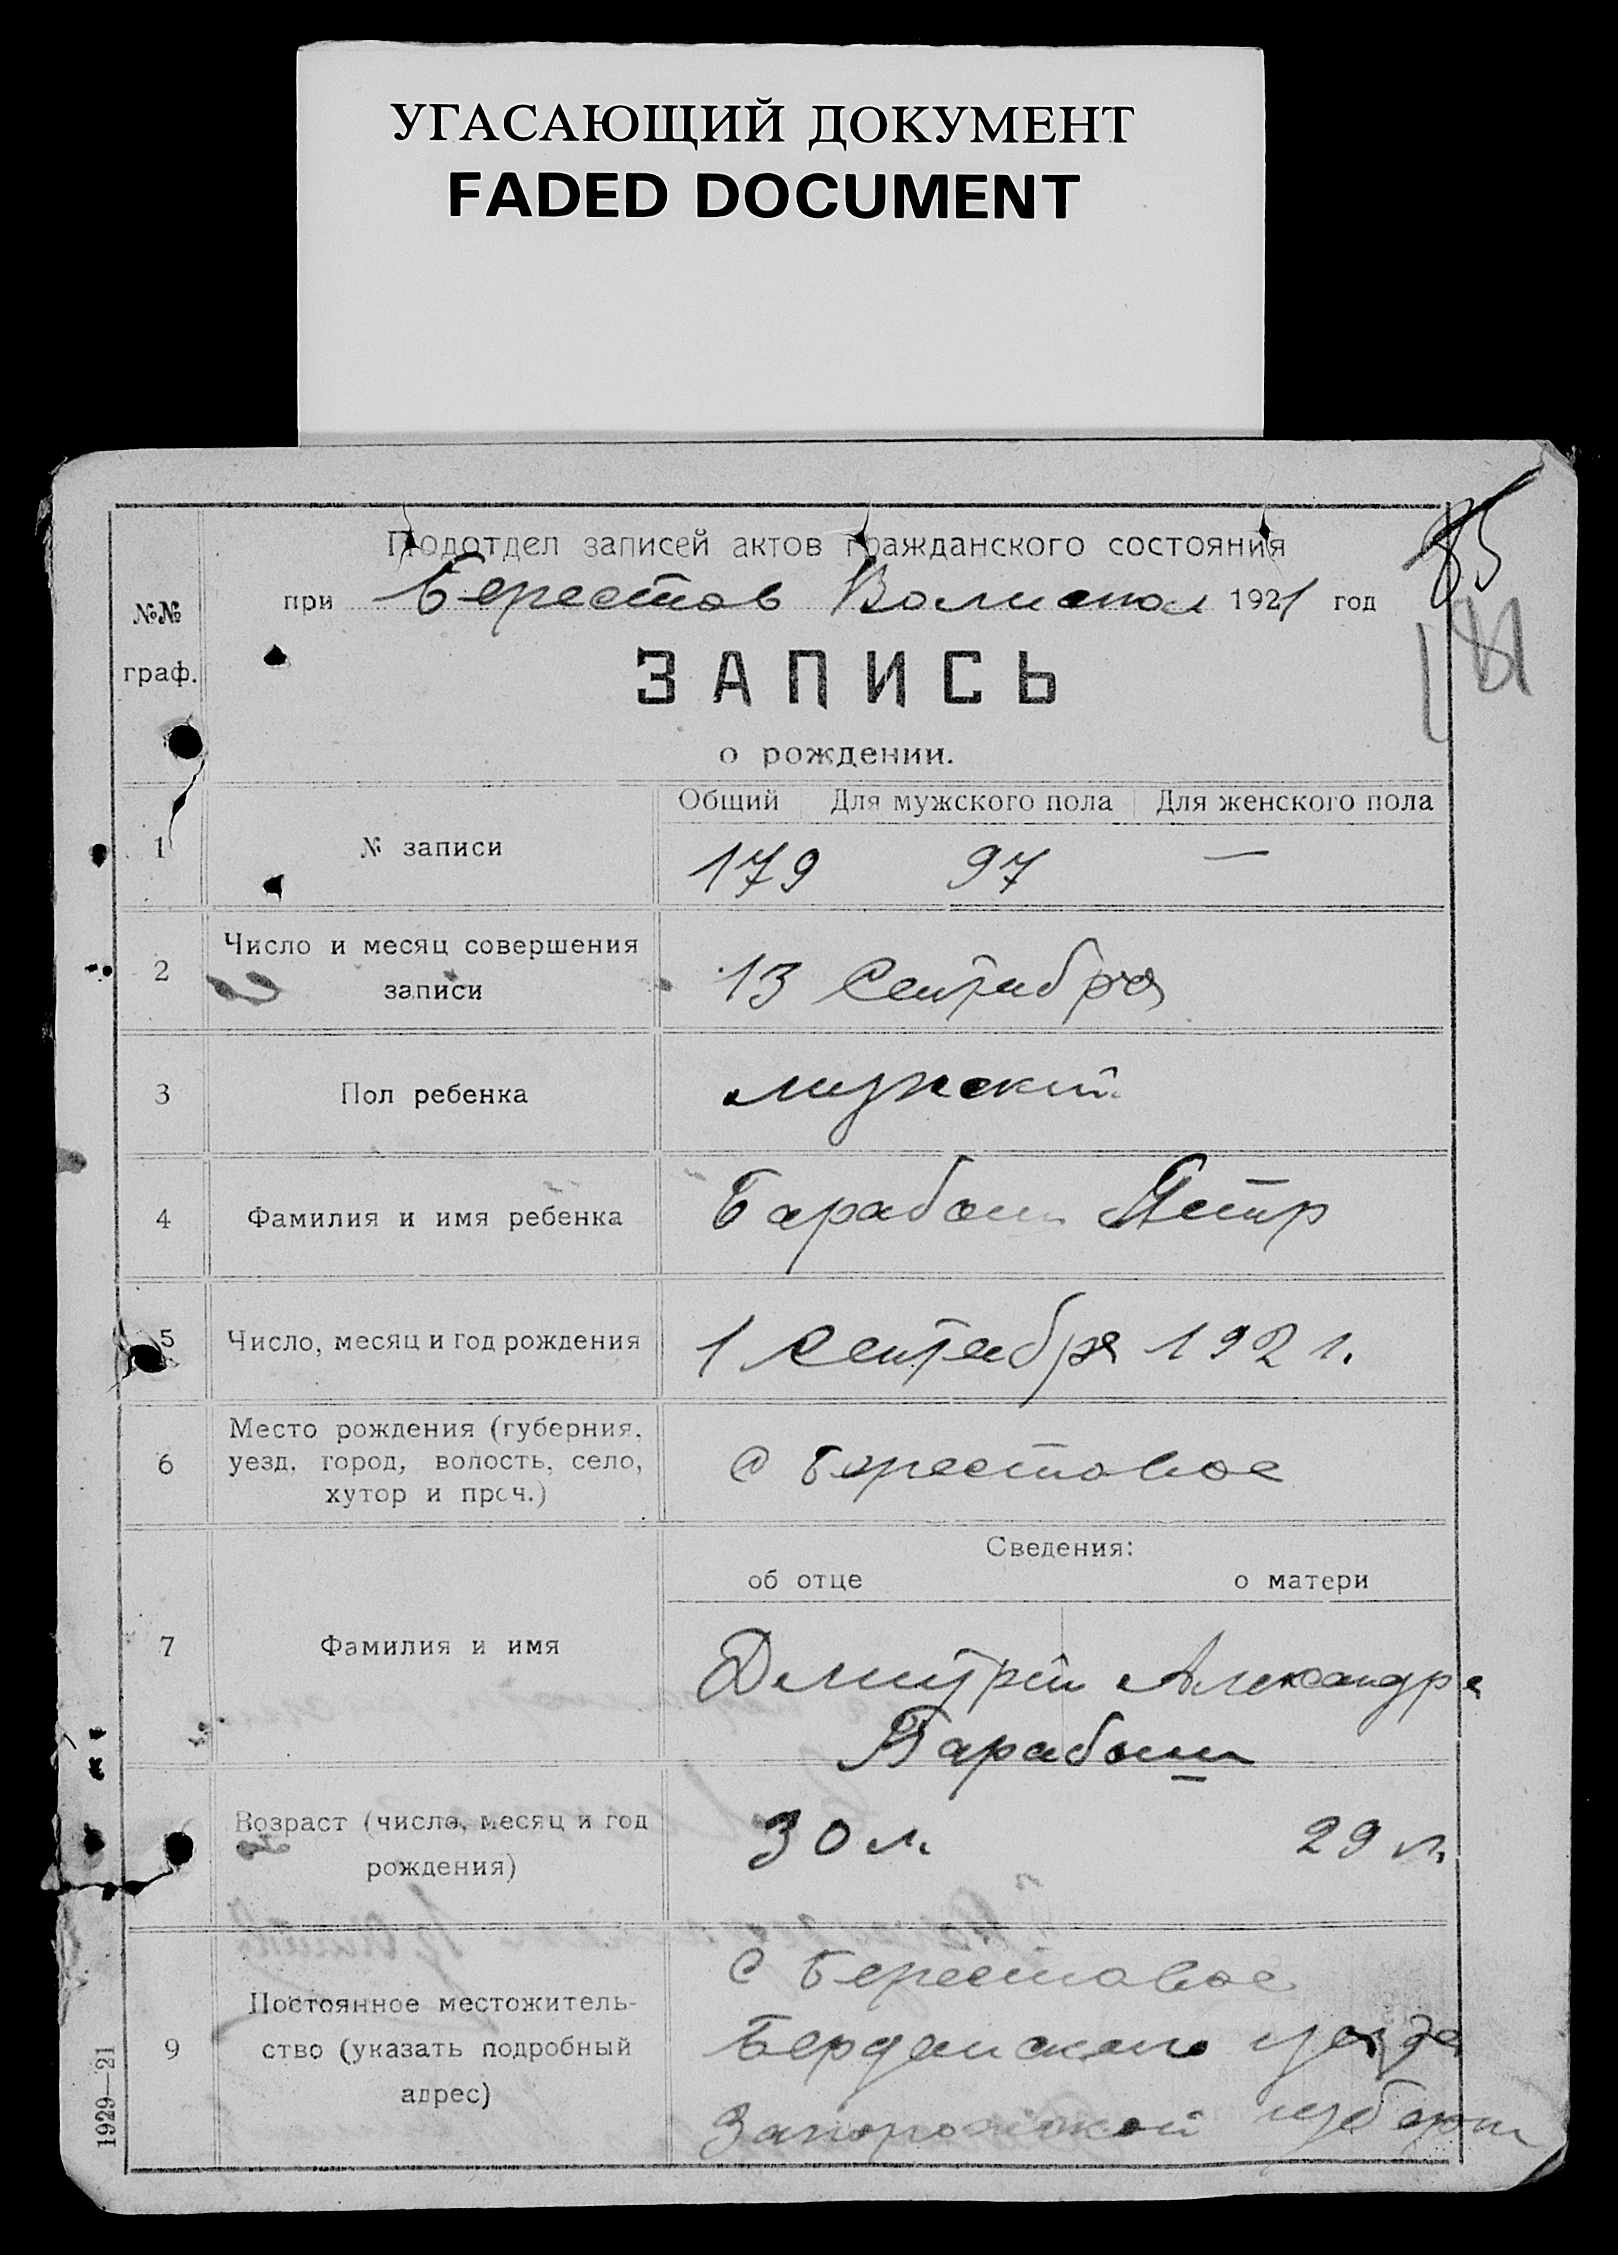 УГАСАЮЩИЙ ДОКУМЕНТ
FADED DOCUMENT
Подотдел записей актов гражданского состояния
при Берестов Волиспол 1921 год
85
181
№№
граф.
ЗАПИСЬ
о рождении.
Общий Для мужского пола Для женского пола
1 № записи 179 97 —
2 Число и месяц совершения
записи
13 Сентября
3 Пол ребенка мужской
4 Фамилия и имя ребенка Барабаш Петр
5 Число, месяц и год рождения 1 Сентября 1921.
Место рождения (губерния,
6 уезд, город, волость, село, с Берестовое
хутор и проч.)
Сведения:
об отце о матери
7 Фамилия и имя Дмитрий Александра
Барабаш
Возраст (число, месяц и год
рождения)
30 л. 29 л.
с Берестовое
9 Постоянное местожитель-
ство (указать подробный
адрес)
Бердянского уезда
Запорожской губерн
1929—21